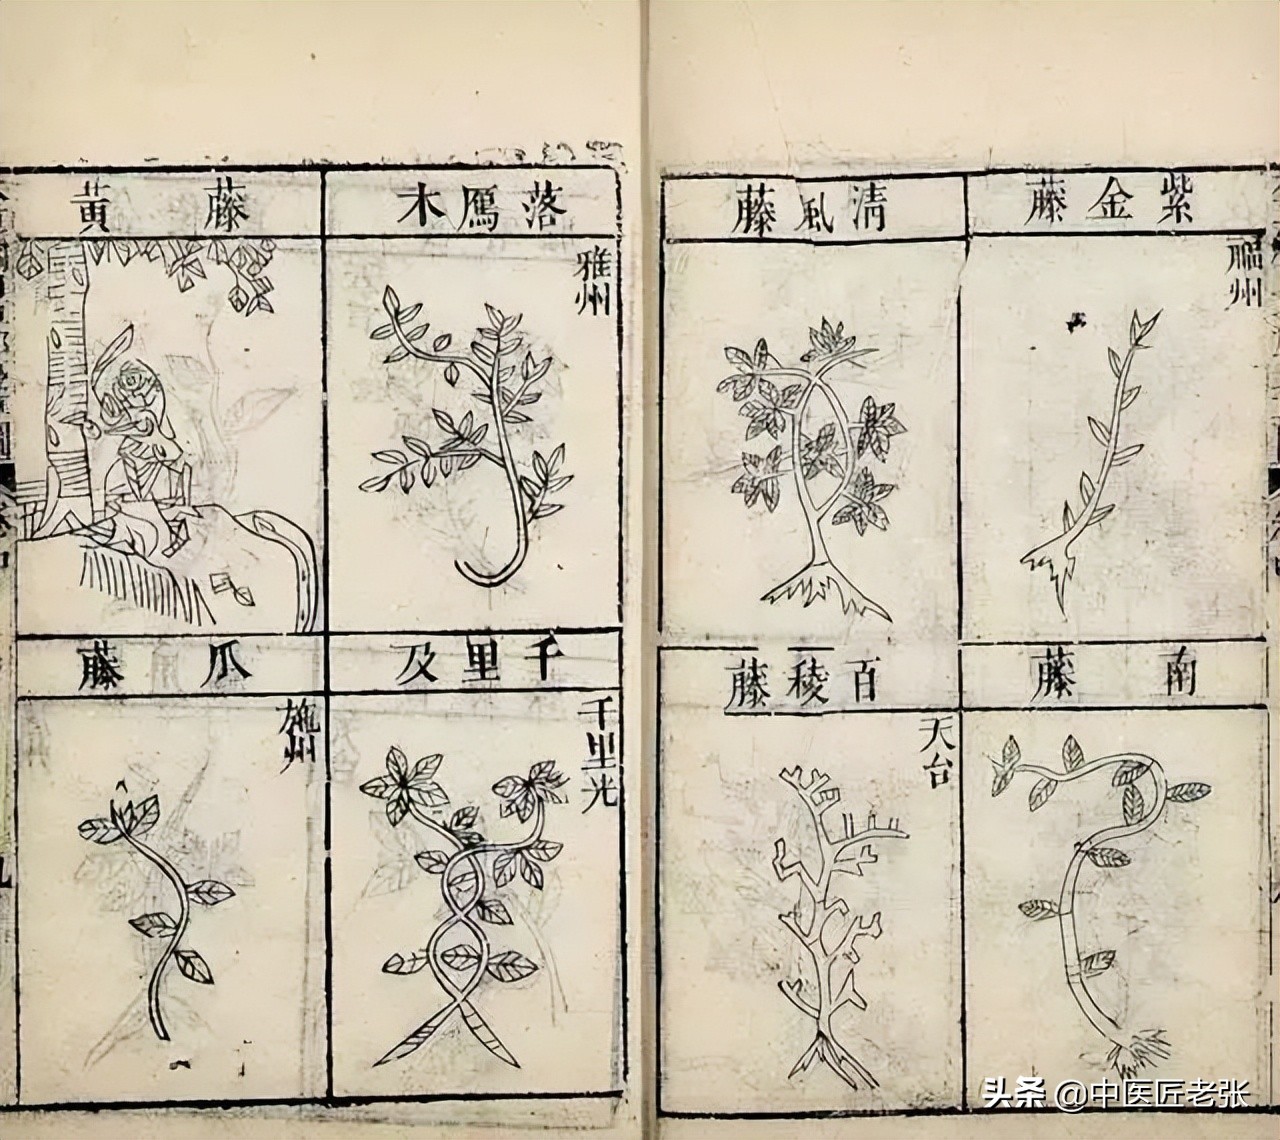 紫金藤
福州
清風藤
南藤
百稜藤
天台
落鴈木
雅州
藤黃
千里及
千里光
爪藤
施州
头条 @中医匠老张